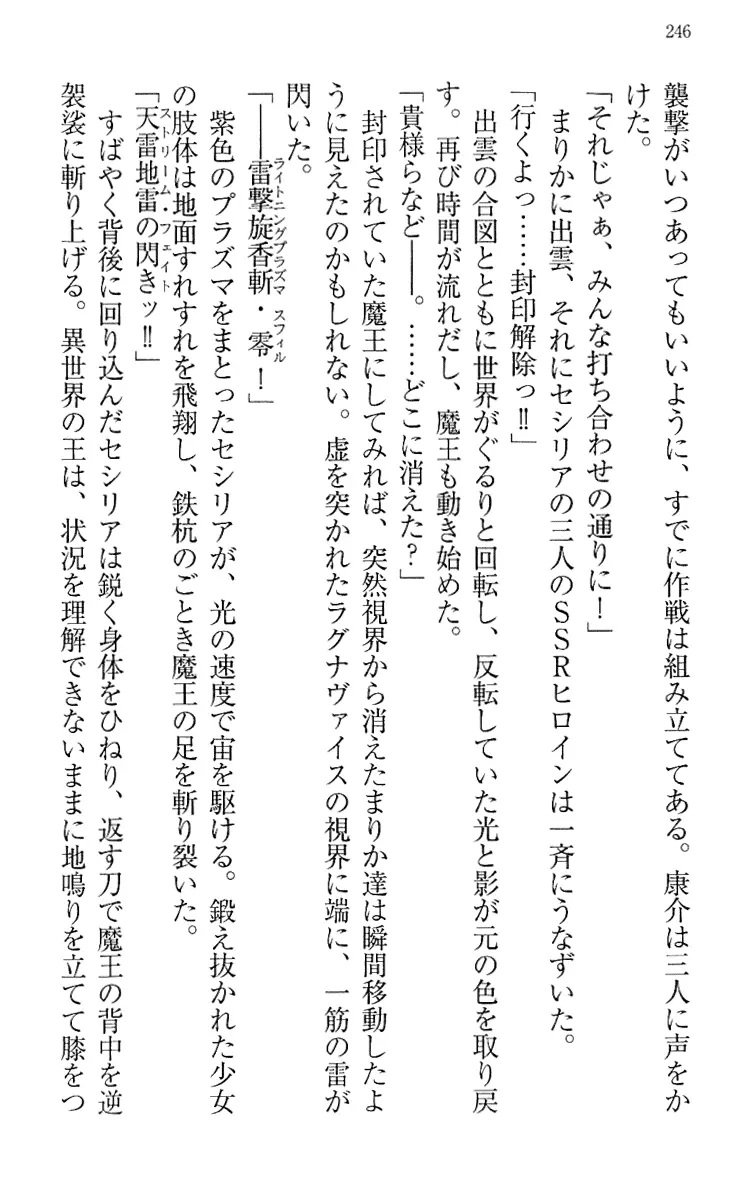 246
襲撃がいつあってもいいように、すでに作戦は組み立ててある。康介は三人に声をか
けた。
「それじゃぁ、みんな打ち合わせの通りに！」
まりかに出雲、それにセシリアの三人のＳＳＲヒロインは一斉にうなずいた。
「行くよっ……封印解除っ‼」
出雲の合図とともに世界がぐるりと回転し、反転していた光と影が元の色を取り戻
す。再び時間が流れだし、魔王も動き始めた。
「貴様らなど――。……どこに消えた？」
封印されていた魔王にしてみれば、突然視界から消えたまりか達は瞬間移動したよ
うに見えたのかもしれない。虚を突かれたラグナヴァイスの視界に端に、一筋の雷が
閃いた。
ライトニングプラズマ スフィル
「――雷撃旋香斬・零！」
紫色のプラズマをまとったセシリアが、光の速度で宙を駆ける。鍛え抜かれた少女
の肢体は地面すれすれを飛翔し、鉄杭のごとき魔王の足を斬り裂いた。
ストリーム・フェイト
「天雷地雷の閃きッ‼」
すばやく背後に回り込んだセシリアは鋭く身体をひねり、返す刀で魔王の背中を逆
袈裟に斬り上げる。異世界の王は、状況を理解できないままに地鳴りを立てて膝をつ